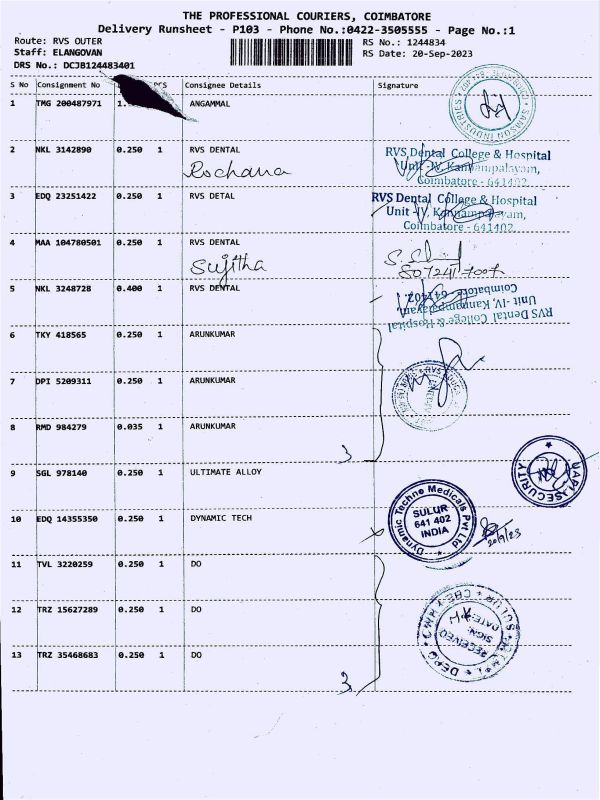 THE PROFESSIONAL COURIERS, COIMBATORE
Delivery Runsheet - P103 - Phone No.:0422-3505555 - Page No.:1
Route: RVS OUTER
Staff: ELANGOVAN
DRS No.: DCJB124483401
RS No.: 1244834
RS Date: 20-Sep-2023
S No Consignment No PCS Consignee Details Signature
1 TMG 200487971 1. ANGAMMAL
SAMSON INDUSTRIES
2 NKL 3142890 0.250 1 RVS DENTAL
Rochana
RVS Dental College & Hospital
Unit -IV, Kannampalayam,
Coimbatore - 641402.
3 EDQ 23251422 0.250 1 RVS DETAL
RVS Dental College & Hospital
Unit -IV, Kannampalayam,
Coimbatore - 641402.
4 MAA 104780501 0.250 1 RVS DENTAL
Sujitha
5 NKL 3248728 0.400 1 RVS DENTAL
RVS Dental College & Hospital
Unit -IV, Kannampalayam,
Coimbatore - 641402.
6 TKY 418565 0.250 1 ARUNKUMAR
7 DPI 5209311 0.250 1 ARUNKUMAR
8 RMD 984279 0.035 1 ARUNKUMAR
3
9 SGL 978140 0.250 1 ULTIMATE ALLOY
SECURITY
10 EDQ 14355350 0.250 1 DYNAMIC TECH
Dynamic Techno Medicals Pvt Ltd
SULUR
641 402
INDIA
20/9/23
11 TVL 3220259 0.250 1 DO
12 TRZ 15627289 0.250 1 DO
RECEIVED
SIGN.
DATE:
13 TRZ 35468683 0.250 1 DO
3